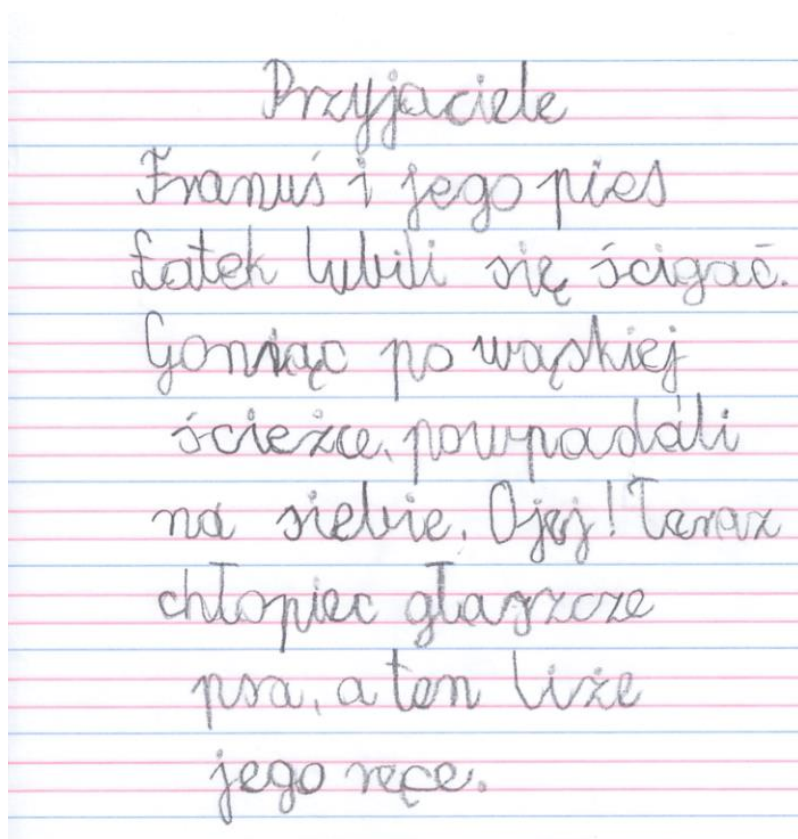 Przyjaciele
Franuś i jego pies
Łatek lubili się ścigać.
Goniąc po wąskiej
ścieżce, powpadali
na siebie. Ojej! Teraz
chłopiec głaszcze
psa, a ten liże
jego ręce.